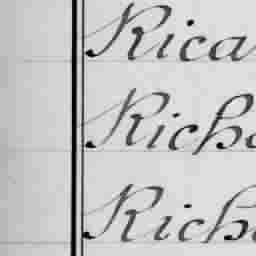 Rica
Richa
Richa